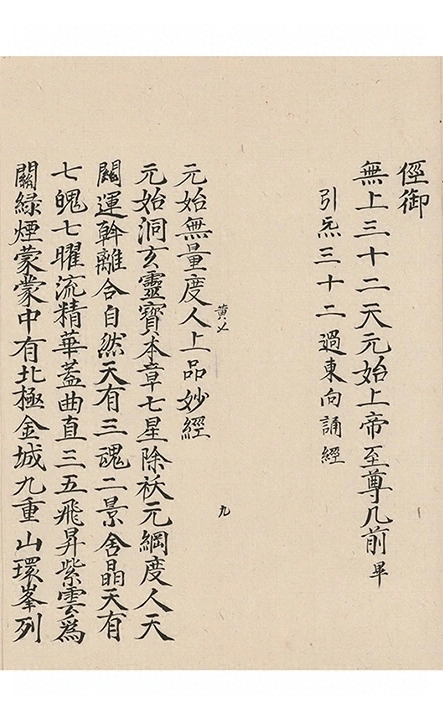 徑御
無上三十二天元始上帝至尊几前畢
引炁三十二過東向誦經
黃上 九
元始無量度人上品妙經
元始洞玄靈寶本章七星除祅元綱度人天
闕運斡離合自然天有三魂二景含晶天有
七魄七曜流精華蓋曲直三五飛昇紫雲為
闕綠煙蒙蒙中有北極金城九重山環峯列